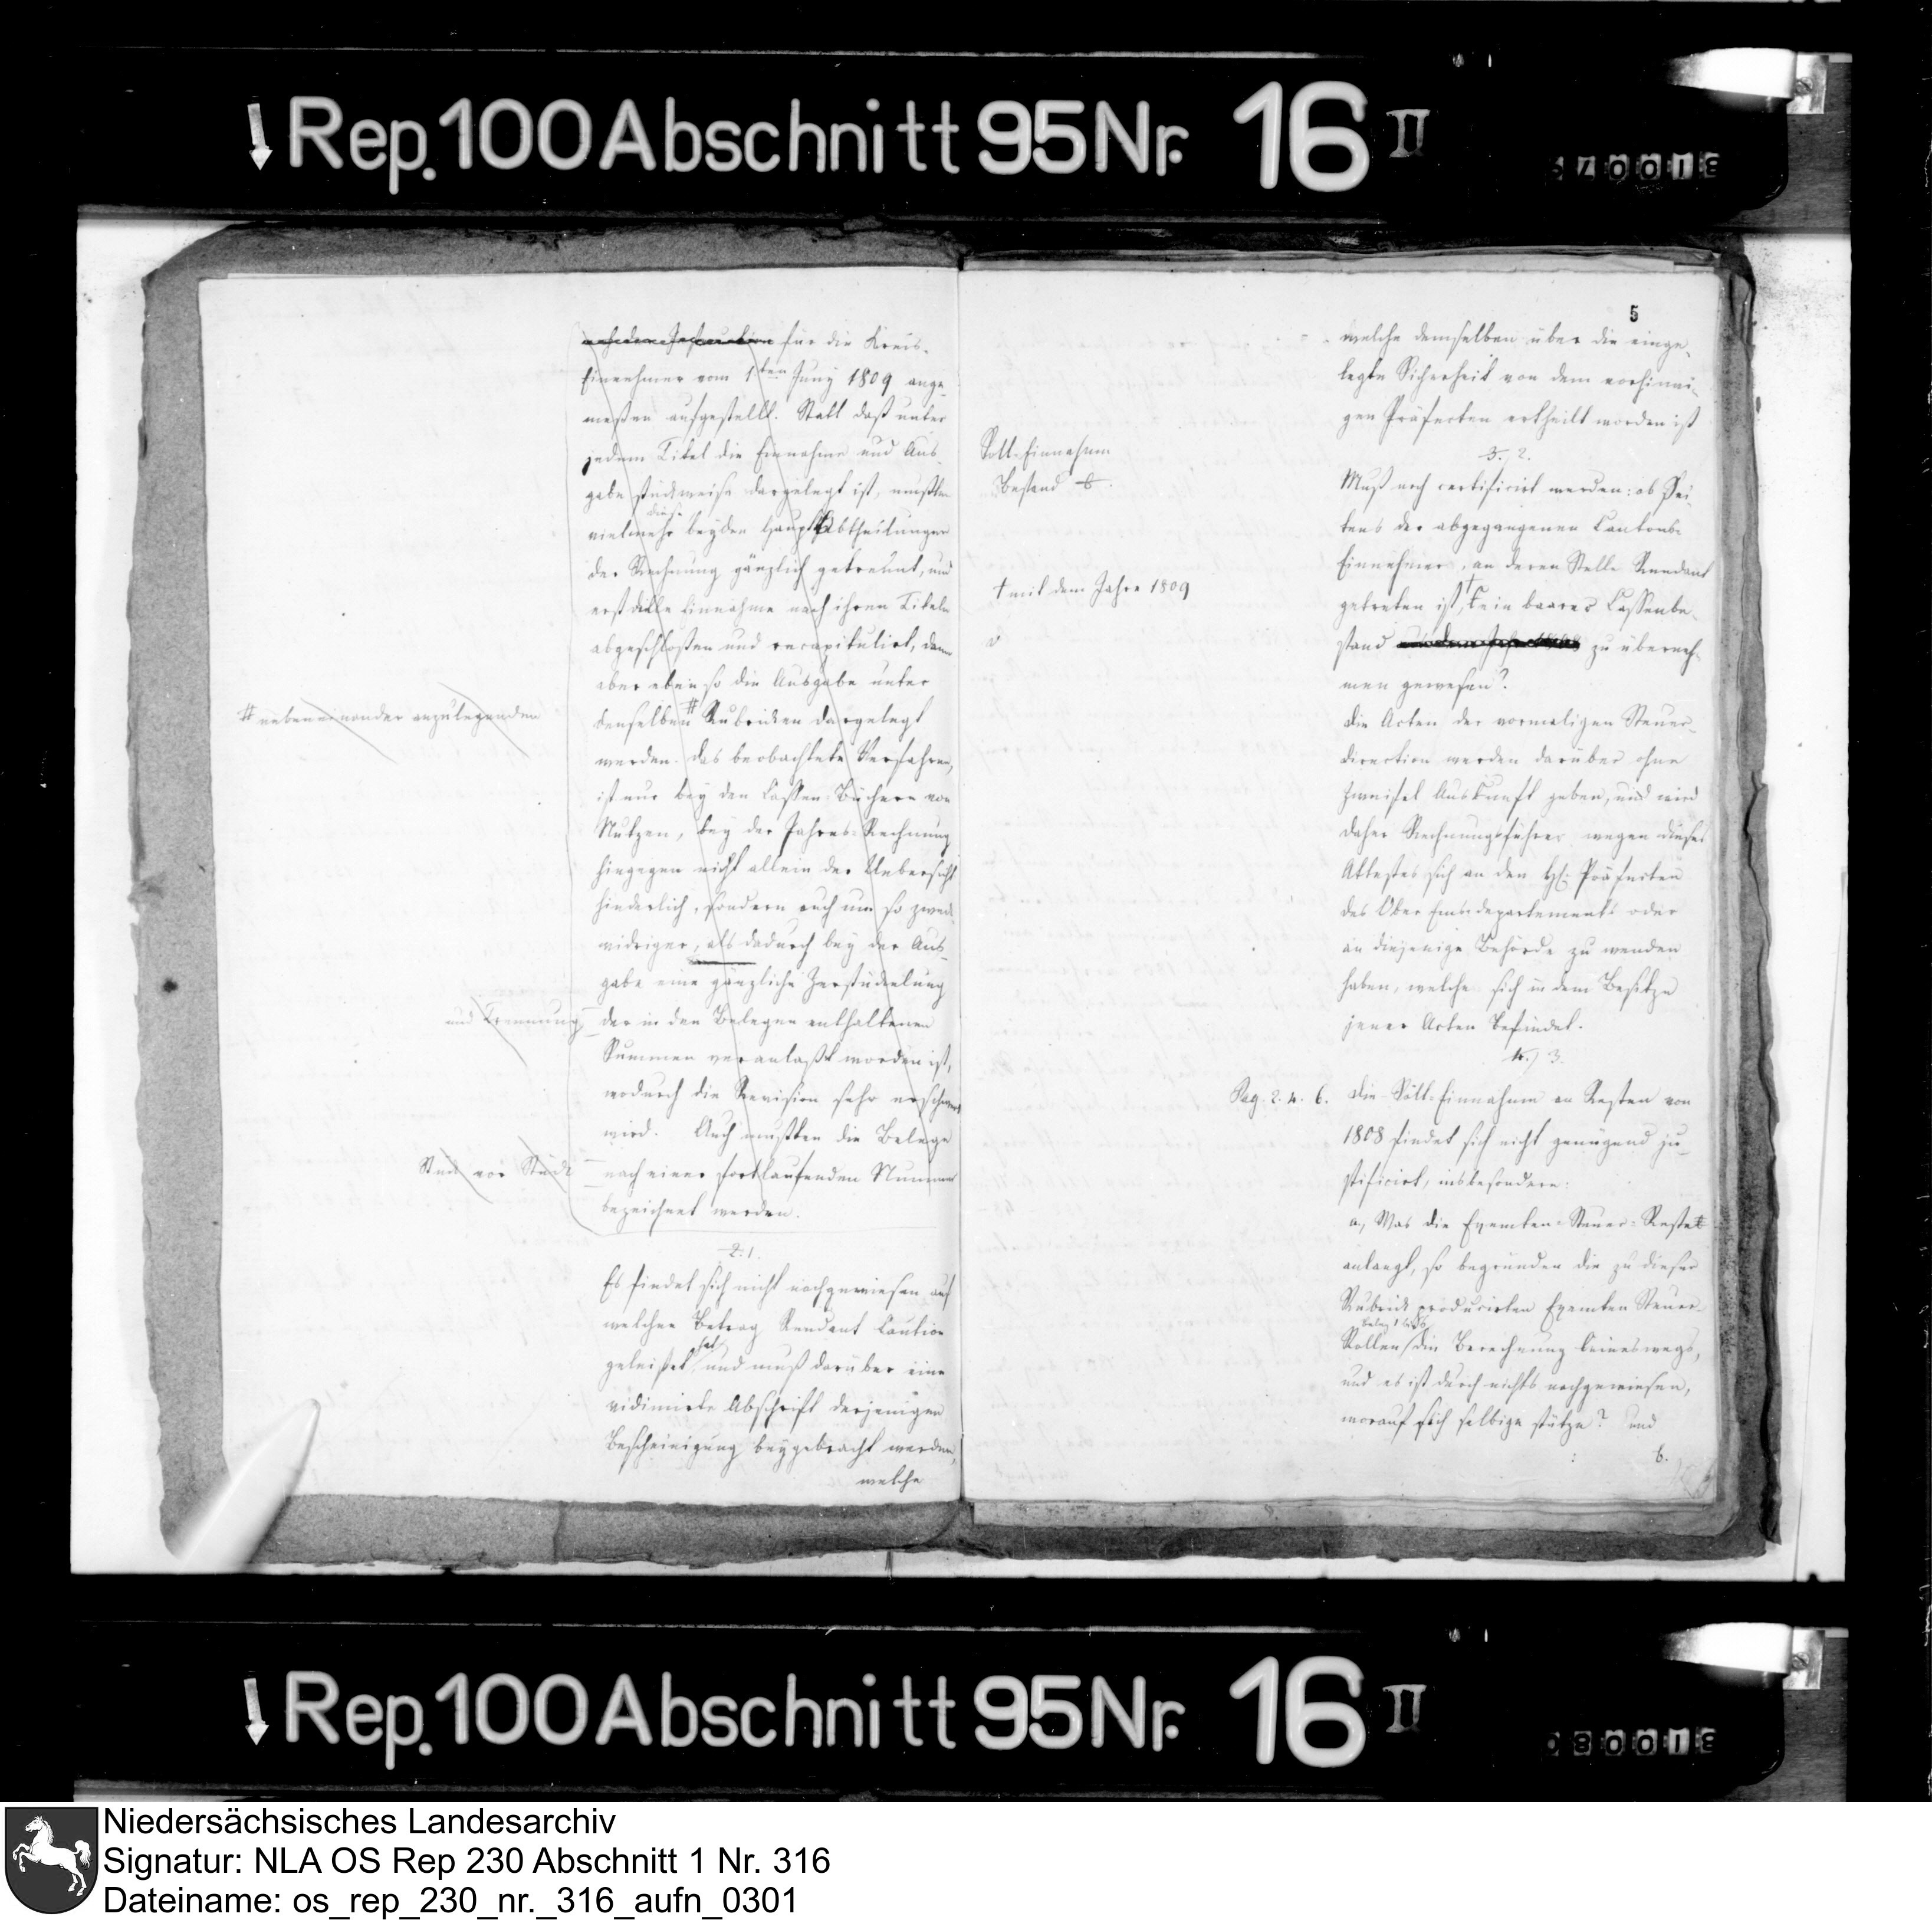 Rep. 100 Abschnitt 95 Nr. 16 II
für die Kreis-
Einnehmer vom 1ten Juny 1809 ange-
meßen aufgestellt. Statt daß unter
jedem Titel die Einnahme und Aus-
gabe stückweise dargelegt ist, mußten
diese
vielmehr beyden Haupt Abtheilungen
der Rechnung gänzlich getrennt, und
erst die Einnahme nach ihren Titeln
abgeschloßen und recapitulirt, dann
aber eben so die Ausgabe unter
# neben einander anzulegenden
denselben # Rubricken dargelegt
werden. Das beobachtete Verfahren,
ist nur bey den Cassen-Büchern von
Nutzen, bey der Jahres-Rechnung
hingegen nicht allein der Uebersicht
hinderlich, sondern auch um so zweck-
widriger, als dadurch bey der Aus-
gabe eine gänzliche Zerstückelung
und Trennung
der in den Belegen enthaltenen
Summen veranlaßt worden ist,
wodurch die Revision sehr erschwert
wird. Auch mußten die Belege
Stück vor Stück
nach einer fortlaufenden Nummer
bezeichnet werden.
2. 1.
Es findet sich nicht nachgewiesen auf
welchen Betrag Rendant Caution
hat
geleistet und muß darüber eine
vidimirte Abschrift derjenigen
Bescheinigung beygebracht werden,
welche
5
welche demselben über die einge-
legte Sicherheit von dem vorhinni-
gen Präfecten ertheilt worden ist
Soll-Einnahme
Bestand
3. 2.
Muß noch certificirt werden: ob Sei-
tens der abgegangenen Cantons-
Einnehmer, an deren Stelle Rendant
† mit dem Jahre 1809
getreten ist, † kein baarer Cassenbe-
stand zu überneh-
men gewesen?
Die Acten der vormaligen Steuer-
direction werden darüber ohne
Zweifel Auskunft geben, und wird
daher Rechnungsführer wegen dieses
Attestes sich an den H. Präfecten
des Ober Emsdepartements oder
an diejenige Behörde zu wenden
haben, welche sich in dem Besitze
jener Acten befindet.
4.) 3.
Pag. 2. 4. 6.
Die Soll-Einnahme an Resten von
1808 findet sich nicht genügend ju-
stificirt, insbesondere:
a, Was die Exemten-Steuer-Reste
anlangt, so begründen die zu dieser
Rubrick producirten Exemten Steuer-
Rollen die Berechnung keineswegs,
und es ist durch nichts nachgewiesen,
worauf sich selbige stütze? und
b.
Rep. 100 Abschnitt 95 Nr. 16 II
Niedersächsisches Landesarchiv
Signatur: NLA OS Rep 230 Abschnitt 1 Nr. 316
Dateiname: os_rep_230_nr._316_aufn_0301